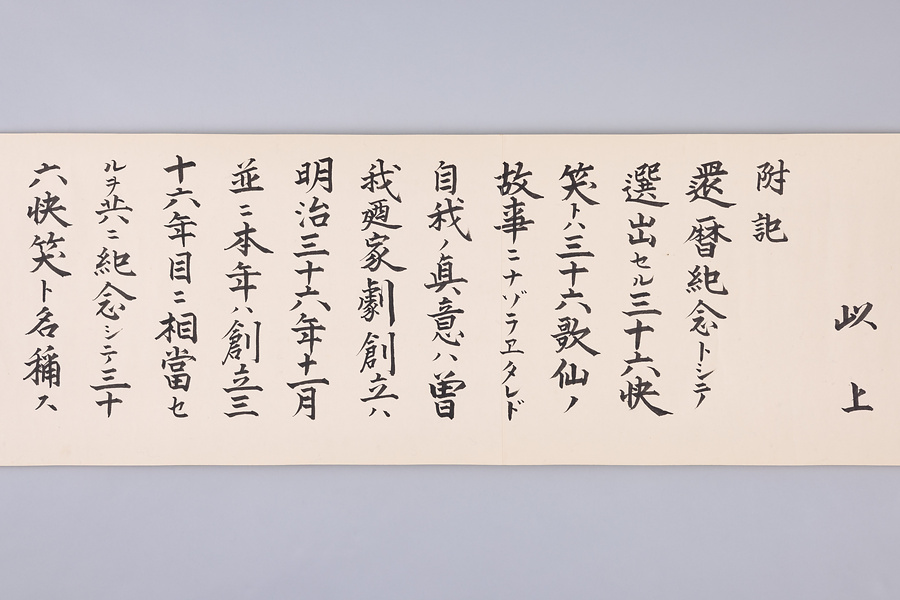 以上
附記
還暦紀念トシテノ
選出セル三十六快
笑トハ三十六歌仙ノ
故事ニナゾラヱタレド
自我ノ眞意ハ曽
我廼家劇創立ハ
明治三十六年十一月
並ニ本年ハ創立三
十六年目ニ相當セ
ルヲ共ニ紀念シテ三十
六快笑ト名稱ス